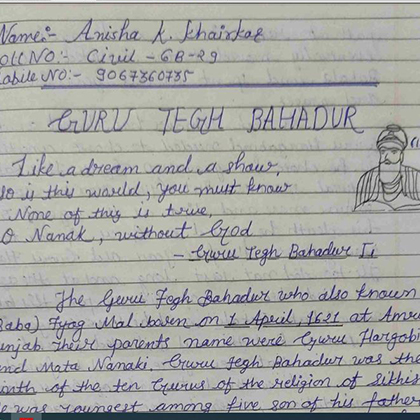 Name:- Anisha K. Khairkar
Roll NO:- Civil - GB-29
Mobile NO:- 9067360735
GURU TEGH BAHADUR
Like a dream and a show,
So is this world, you must know
None of this is true
O Nanak, without God
- Guru Tegh Bahadur I,
The Guru Tegh Bahadur who also known
(Baba) Tyag Mal born on 1 April, 1621 at Amr
Punjab their parents name were Guru Hargobi
and Mata Nanaki, Guru Tegh Bahadur was the
ninth of the ten Gurus of the religion of Sikhis
He was youngest among five son of his father